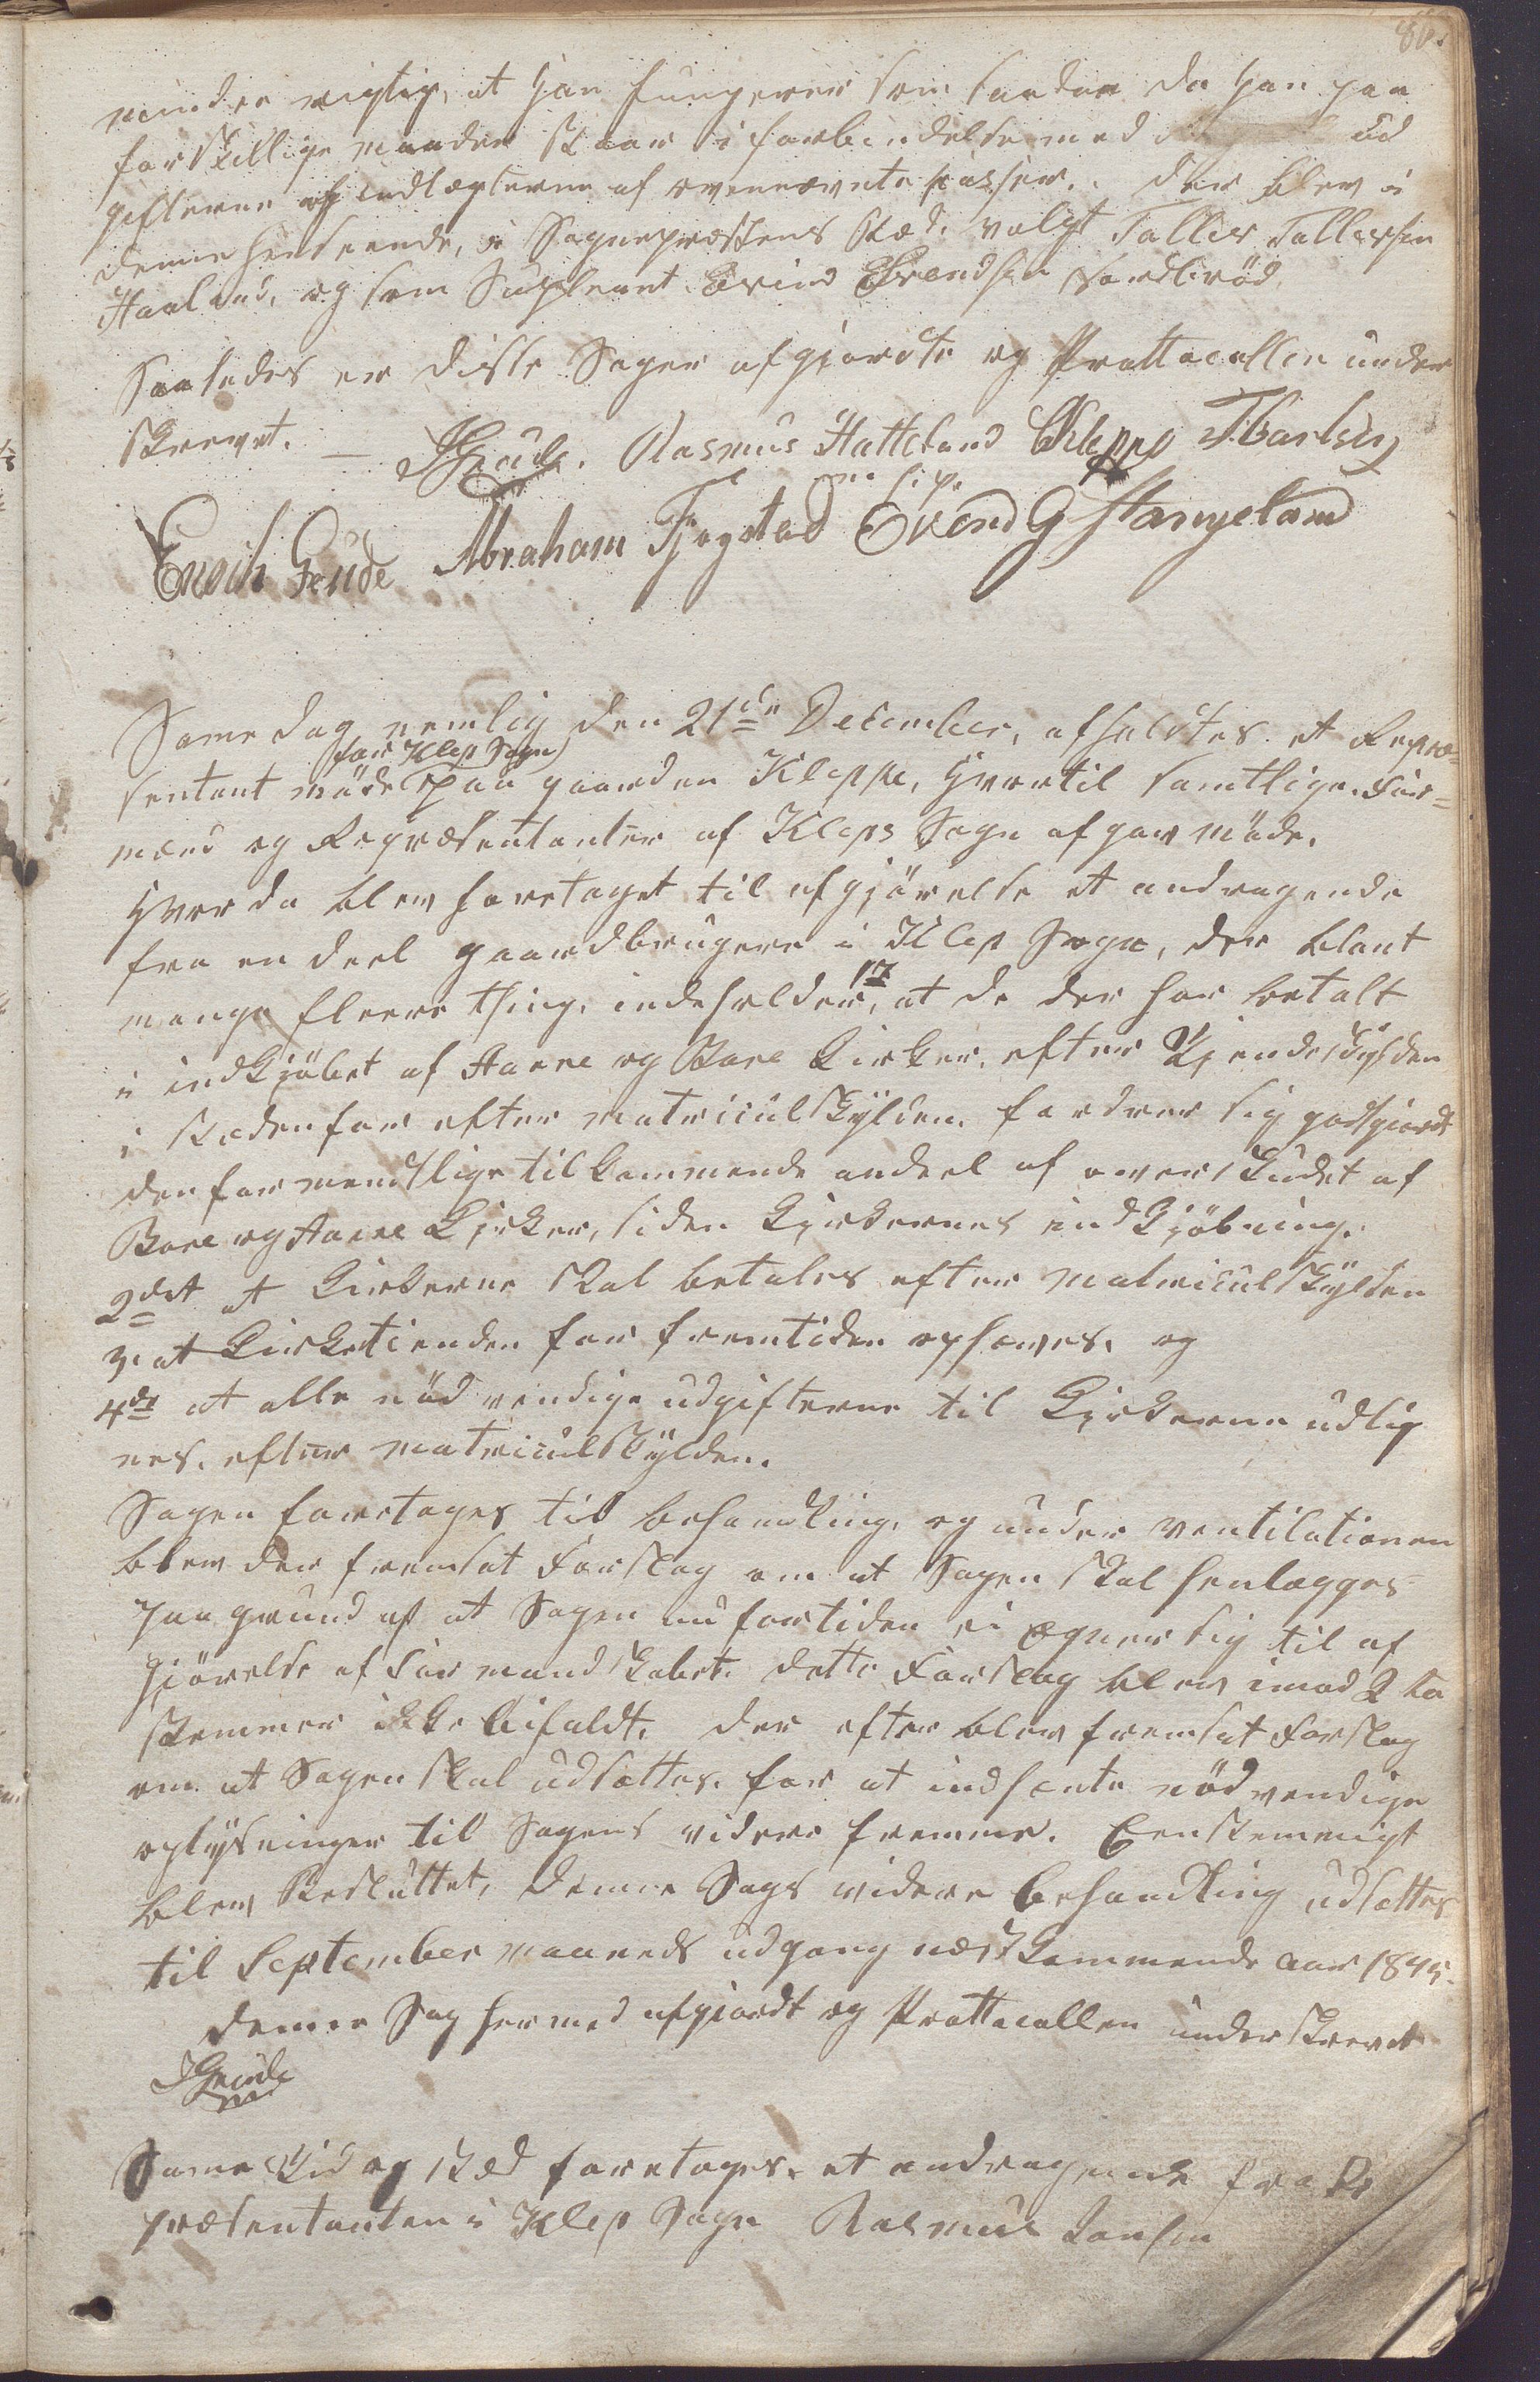 80.
mindre vigtig, at han fungerer som saadan da han paa
forskillige maader staar i forbindelse med ud
gifterne og indtægterne af ovennævnte kasser. der blev i
denne henseende, i Sognepræstens stæd, valgt Taller Tallersen
Haaland, og som Suppleant Evind Svendsen
Saaledes er disse Sager afgjordte og Prottocollen under
skrevet. — Rasmus Hatteland OKleppe TBarlsen
Enoch Grude Abraham Fjogstad Evend G Stangeland
Same dag nemlig den 21de December, afholdtes et Repræ=
for Klep Sogn
sentant møde paa gaarden Kleppe, hvortil samtlige For=
mænd og Repræsentanter af Kleps Sogn afgav møde,
hvor da blev foretaget til afgjörelse et andragende
fra en deel gaardbrugere i Klep Sogn, der blant
mange fleere thing, indeholder, 1o at de der har betalt
i indkjöbet af Haare og Bore Kirker, efter Tjendeskylden
i stædenfor efter matriculskylden, fordrer sig godtgiordt
den formendtlige tilkommende andeel af overskudet af
Bore og Haare Kirker, siden Kirkernes indkjöbning.
2det at Kirkerne skal betales efter matriculskylden
3. at Kirketienden for fremtiden ophæves, og
4de at alle nödvendige udgifterne til Kirkerne udlig
nes, efter matriculskylden.
Sagen foretages til behandling, og under ventilationen
blev der fremsat Forslag om at Sagen skal henlægges
paa grund af at Sagen nu for tiden ei egner sig til af
gjörelse af Formandskabet. dette Forslag blev imod 2to
stemmer ikke bifaldt, der efter blev fremsat Forslag
om at Sagen skal udsættes, for at indhente nödvendige
oplysninger til Sagens videre fremme. Eenstemmigt
blev Besluttet, denne Sags videre behandling udsættes
til September maaneds udgang næstkommende aar 1845.
denne Sag hermed afgiordt og Prottocollen underskrevet
Same tid og stæd foretages, et andragende fra Re
præsentanten i Klep Sogn Rasmus Larsen